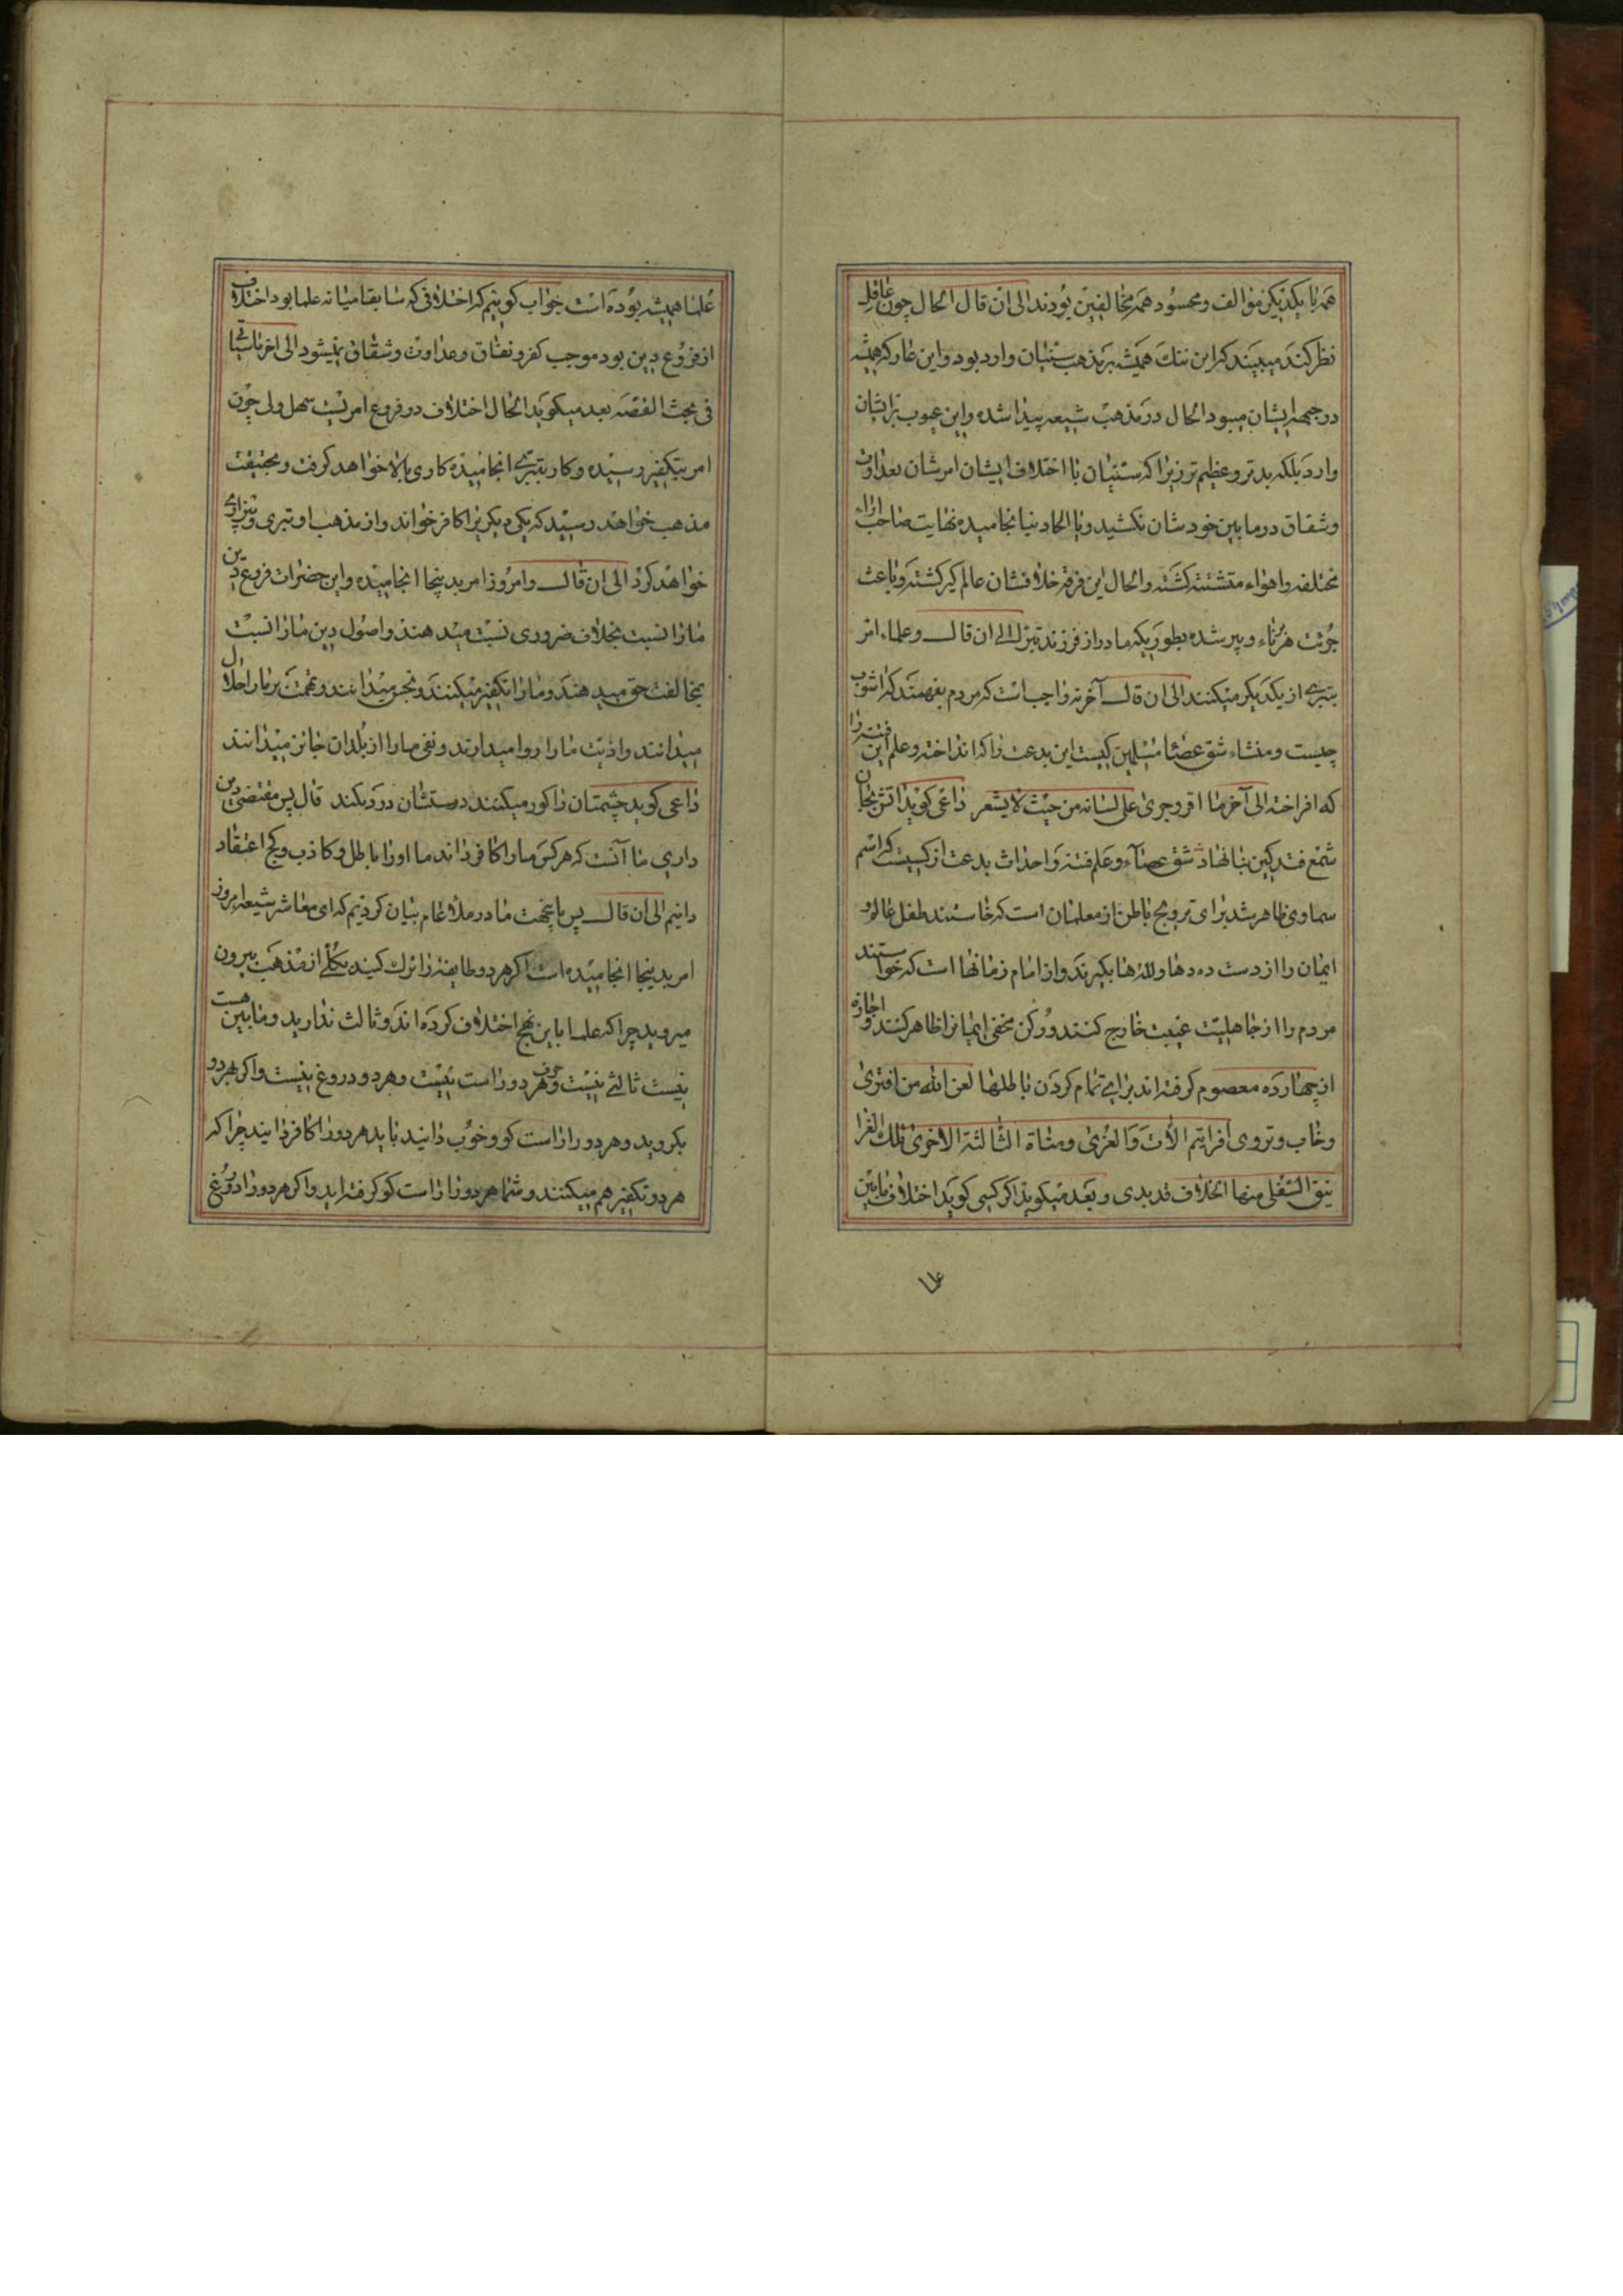 همه با یکدیگر مؤالف و محسود همه مخالفین بودند الی ان قال الحال چون عاقل
نظر کند میبیند که این ننک همیشه بر مذهب سنیان وارد بود و این عار که همیشه
در جبهه ایشان میبود الحال در مذهب شیعه پیدا شده و این عیوب بر ایشان
وارد بلکه بدتر و عظیم تر زیرا که سنیان با اختلاف ایشان امرشان بعداوت
و شقاق در مابین خودشان نکشید و با الحاد نیانجامیده نهایت صاحب اراء
مختلفه و اهواء متشتته کشته و الحال این فرقه خلافشان عالم کیر کشته و باعث
جرئت هر برناء و پیر شده بطوریکه مادر از فرزند تبری الی ان قال و علماء امر
بتبری از یکدیکر میکنند الی ان قال آخر نه واجب است که مردم بفهمند که اشوب
چیست و منشاء شق عصای مسلمین کیست این بدعت را که انداخته و علم این فتنه را
که افراخته الی آخر ما اقر و جری علی لسانه من حیث لا یشعر داعی کوید اتش بجان
شمع فتد کین بنا نهاد شق عصاء و علم فتنه و احداث بدعت از کیست که اسم
سماوی ظاهر شد برای ترویج باطن از معلمان است که خاستند طفل غالو و
ایمان را از دست دده ها و لله ها بکیرند و از امام زمانها است که خواستند
مردم را از جاهلیت غیبت خارج کنند و رکن مخفی ایمانرا ظاهر کنند و اجازه
از چهارده معصوم کرفته اند برای تمام کردن باطلها لعن الله من افتری
و خاب و تروی افرایتم اللات و العزی و مناة الثالثة الاخری تلک الغرا
نیق السفلی منها الخلاف قد بدی و بعد میکوید اکر کسی کوید اختلاف مابین
علما همیشه بوده است جواب کوئیم که اختلافی که سابقا میانه علما بود اختلاف
از فروع دین بود موجب کفر و نفاق و عداوت و شقاق نمیشود الی اخر ما سیاتی
فی بحث القصه بعد میکوید الحال اختلاف در فروع امریست سهل ولی چون
امر بتکفیر رسیده و کار بتبری انجامیده کاری بالا خواهد کرفت و بحقیقت
مذهب خواهند رسید که یکی دیکریرا کافر خواند و از مذهب او تبری و بیزاری
خواهد کرد الی ان قال و امروز امر بدینجا انجامیده و این حضرات فروع دین
ما را نسبت بخلاف ضروری نسبت میدهند و اصول دین ما را نسبت
بمخالفت حق میدهند و ما را تکفیر میکنند و نجس میدانند و تهمت بر ما را حلال
میدانند و اذیت ما را روا میدارند و نفی ما را از بلدان جائز میدانند
داعی کوید چشمتان را کور میکنند دستشان درد نکند قال پس مقتضی دین
داری ما آنست که هر کس ما را کافر داند ما او را باطل و کاذب و کج اعتقاد
دانیم الی ان قال پس پای تخت ما در ملأ عام بیان کردیم که ای معاشر شیعه امروز
امر بدینجا انجامیده است اکر هر دو طایفه را ترک کنید بکلی از مذهب بیرون
میروید چرا که علما باین نهج اختلاف کرده اند و ثالث ندارید و مابین هست
نیست ثالثی نیست و هر دو حرف راست نیست و هر دو دروغ نیست و اکر بهر دو
بکروید و هر دو را راست کو و خوب دانید باید هر دو را کافر دانید چرا که
هر دو تکفیر هم میکنند و شما هر دو را راست کو کرفته اید و اکر هر دو را دروغ